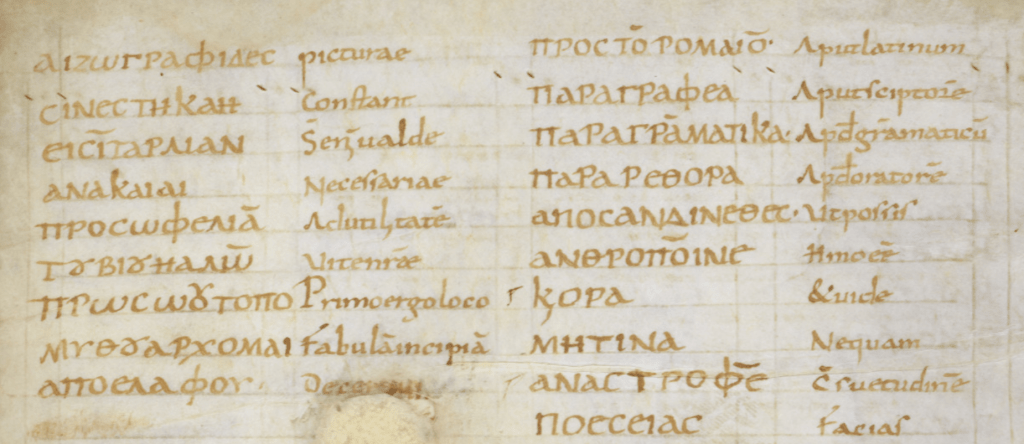 ΑΙΖωΓΡΑΦΙΔΕC picturae
CΙΝΕCΤΗΚΑΗ Constant
ΕΙCῙΤΑΡΛΙΑΝ ualde
ΑΝΑΚΑΙΑΙ Necessariae
ΠΡΟCωΦΕΛΙᾹ Adutilitatē
ΤȣΒΙȣΗΑΛΙω̄
ΠΡωCωȣΤΟΠΟ Primoergoloco
ΜΥΘȣΑΡΧΟΜΑΙ Fabulāincipiā
ΑΠΟΕΛΑΦΟΥ
ΠΡΟCΤŌΡΟΜΑΙŌ· Aputlatinum
ΠΑΡΑΓΡΑΦΕΑ Aputsciptorē
ΠΑΡΑΓΡᾹΜΑΤΙΚΑ· Apđgrāmaticū
ΠΑΡΑΡΕΘΟΡΑ Apđoratorē
ΑΠΟCΑΝΔΙΝΕΘΕC· Utpossis
ΑΝΘΡΟΠŌΙΝΕ Hmoeē
ΚΟΡΑ &uide
ΜΗΤΙΝΑ Nequam
ΑΝΑCΤΡΟΦĒΕ
ΠΟΕCΕΙΑC Facias